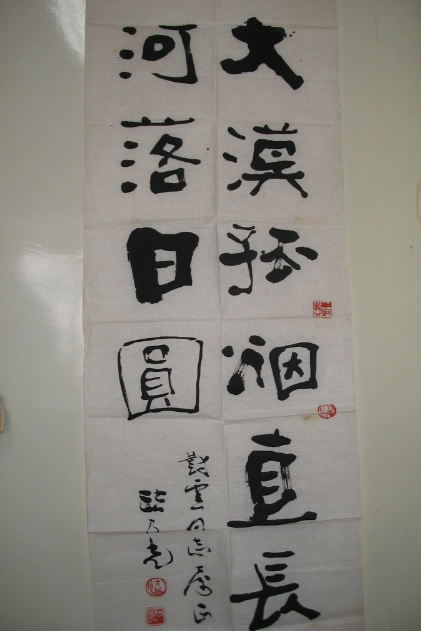 大漠孤烟直長
河落日圓
雲同志属正